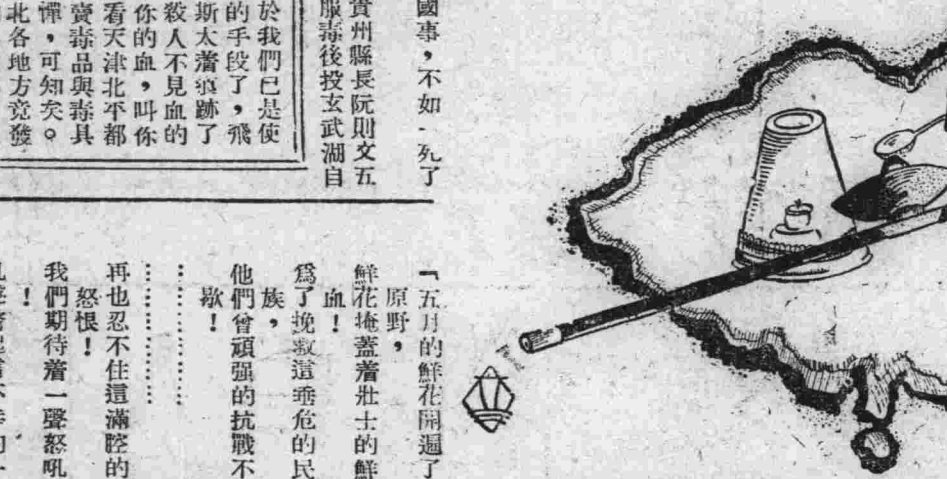 國事，不如-死了
貴州縣長阮則文五
服毒後投玄武湖自
於我們已是使
的手段了，飛
斯太著痕跡了
殺人不見血的
你的血，叫你
看天津北平都
賣毒品與毒具
憚，可知矣。
北各地方竟發
「五月的鮮花開遍了
原野，
鮮花掩蓋着壯士的鮮
血！
爲了挽救這垂危的民
族，
他們曾頑强的抗戰不
歇！
………………
………………
再也忍不住這滿腔的
怒恨！
我們期待着一聲怒吼
！